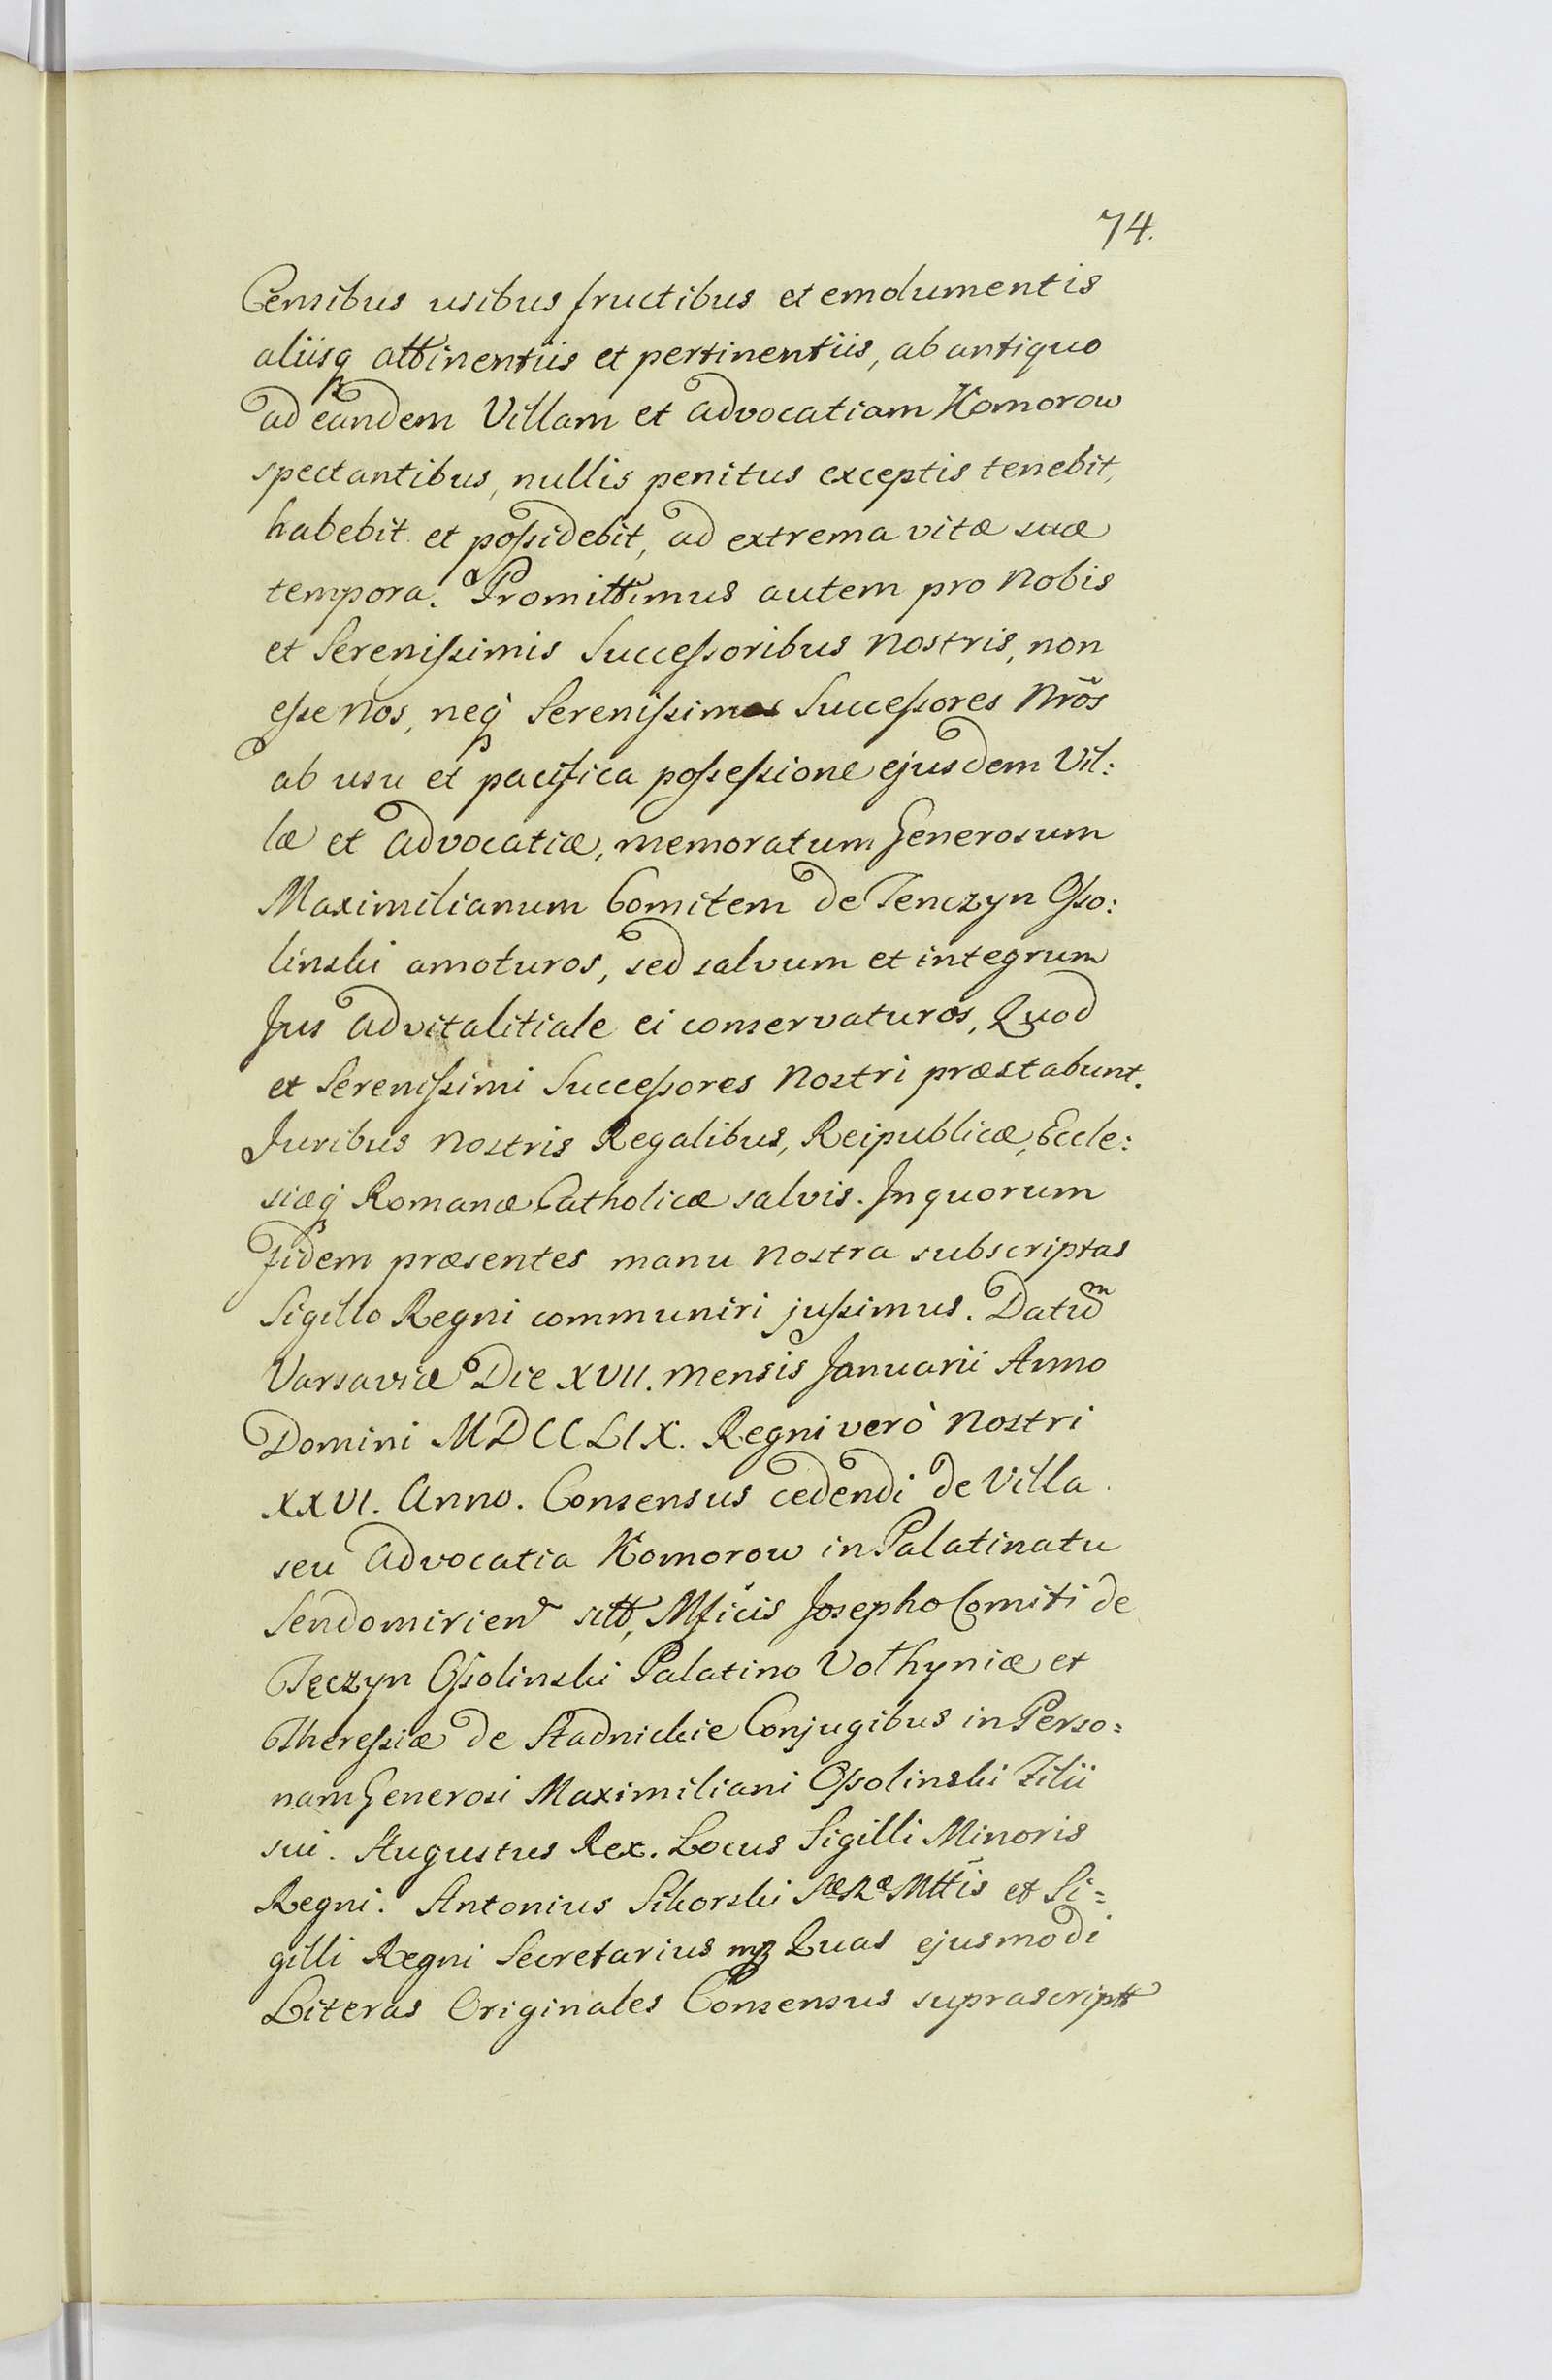 74.
Censibus usibus fructibus et emolumentis
aliisq́ attinentiis et pertinentiis, ab antiquo
ad eandem Villam et advocatiam Komorow
spectantibus, nullis penitus exceptis tenebit,
habebit et poſsidebit, ad extrema vitæ suæ
tempora. Promittimus autem pro Nobis
et Sereniſsimis Succeſsoribus Nostris, non
eſse Nos, neq́ Sereniſsimos Succeſsores Nr̃os
ab usu et pacifica poſseſsione ejusdem Vil:
læ et advocatiæ, memoratum Generosum
Maximilianum Comitem de Tenczyn Oſso:
linski amoturos, sed salvum et integrum
Jus advitalitiale ei conservaturos, Quod
et Sereniſsimi Succeſsores Nostri præstabunt.
Juribus Nostris Regalibus, Reipublicæ, Eccle:
siæq́ Romanæ Catholicæ salvis. In quorum
Fidem præsentes manu Nostra subscriptas
Sigillo Regni communiri juſsimus. Datum
Varsaviæ Die XVII. Mensis Januarii Anno
Domini MDCCLIX. Regni verò Nostri
XXVI. Anno. Consensus cedendi de Villa
seu advocatia Komorow in Palatinatu
Sendomirien sitt, Mficis Josepho Comiti de
Tęczyn Oſsolinski Palatino Volhyniæ et
Thereſsiæ de Stadnickie Conjugibus in Perso=
nam Generosi Maximiliani Oſsolinski Filii
sui. Augustus Rex. Locus Sigilli Minoris
Regni. Antonius Sikorski Sæ Ræ Mttis et Si=
gilli Regni Secretarius mp Quas ejusmodi
Literas Originales Consensus suprascriptt